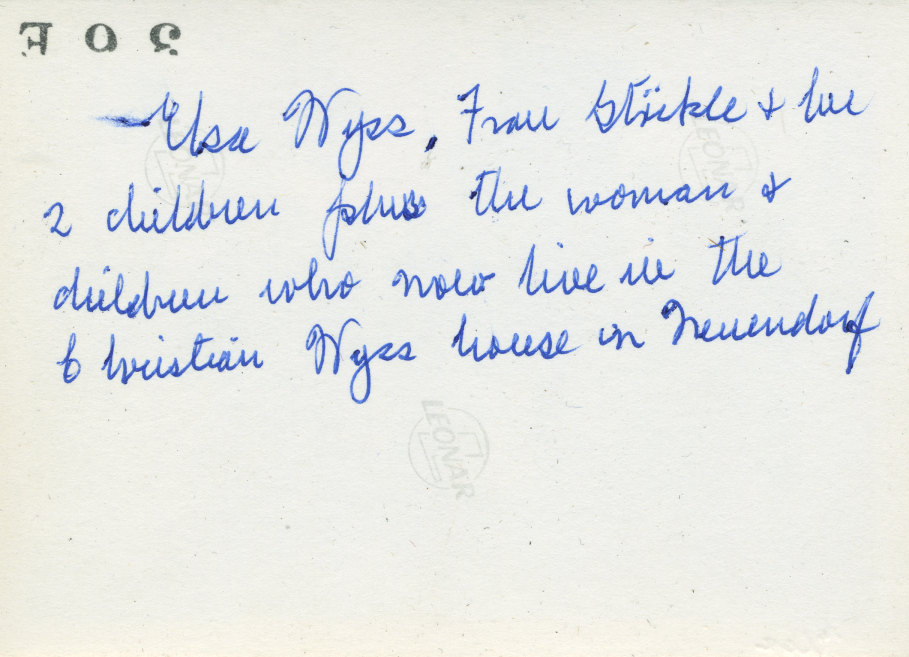 Elsa Wyss, Frau Stöckle & her
2 children plus the woman &
children who now live in the
Christian Wyss house in Neuendorf
LEONAR
LEONAR
LEONAR